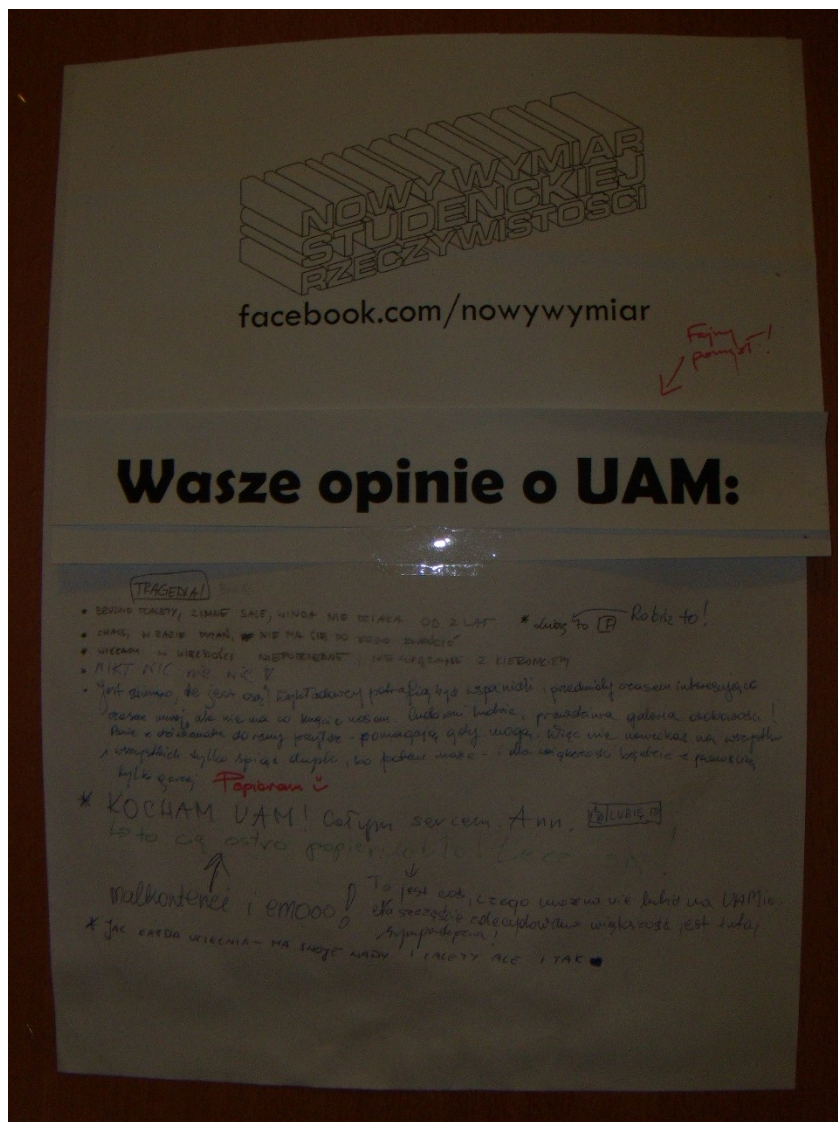 NOWY WYMIAR
STUDENCKIEJ
RZECZYWISTOŚCI
facebook.com/nowywymiar
Fajny pomysł!
Wasze opinie o UAM:
TRAGEDIA!
• BRUDNE TOALETY, ZIMNE SALE, WINDA NIE DZIAŁA OD 2 LAT
* Lubię to Robisz to!
• CHAOS, W RAZIE PYTAŃ, NIE MA SIĘ DO KOGO ZWRÓCIĆ
• W WIĘKSZOŚCI NIEPOTRZEBNE, NIEZWIĄZANE Z KIERUNKIEM
• NIKT NIC NIE WIE!
• Jest super, że jest Wykładowcy potrafią być wspaniali, przedmioty czasem interesujące
czasem mniej, ale nie ma co kręcić nosem. Cudowni ludzie, prawdziwa galeria osobowości!
Panie z dziekanatu do rany przyłóż - pomagają gdy mogą. Więc nie narzekać na wszystko
i wszystkich tylko spiąć dupki, bo potem może - i dla większości będzie z pewnością
tylko gorzej Popieram
* KOCHAM UAM! Całym sercem. Ann. LUBIĘ TO
malkontenci i emooo!
To jest coś, czego można nie lubić na UAMie.
Na szczęście zdecydowana większość jest tutaj
sympatyczna!
* JAK KAŻDA UCZELNIA - MA SWOJE WADY I ZALETY ALE I TAK